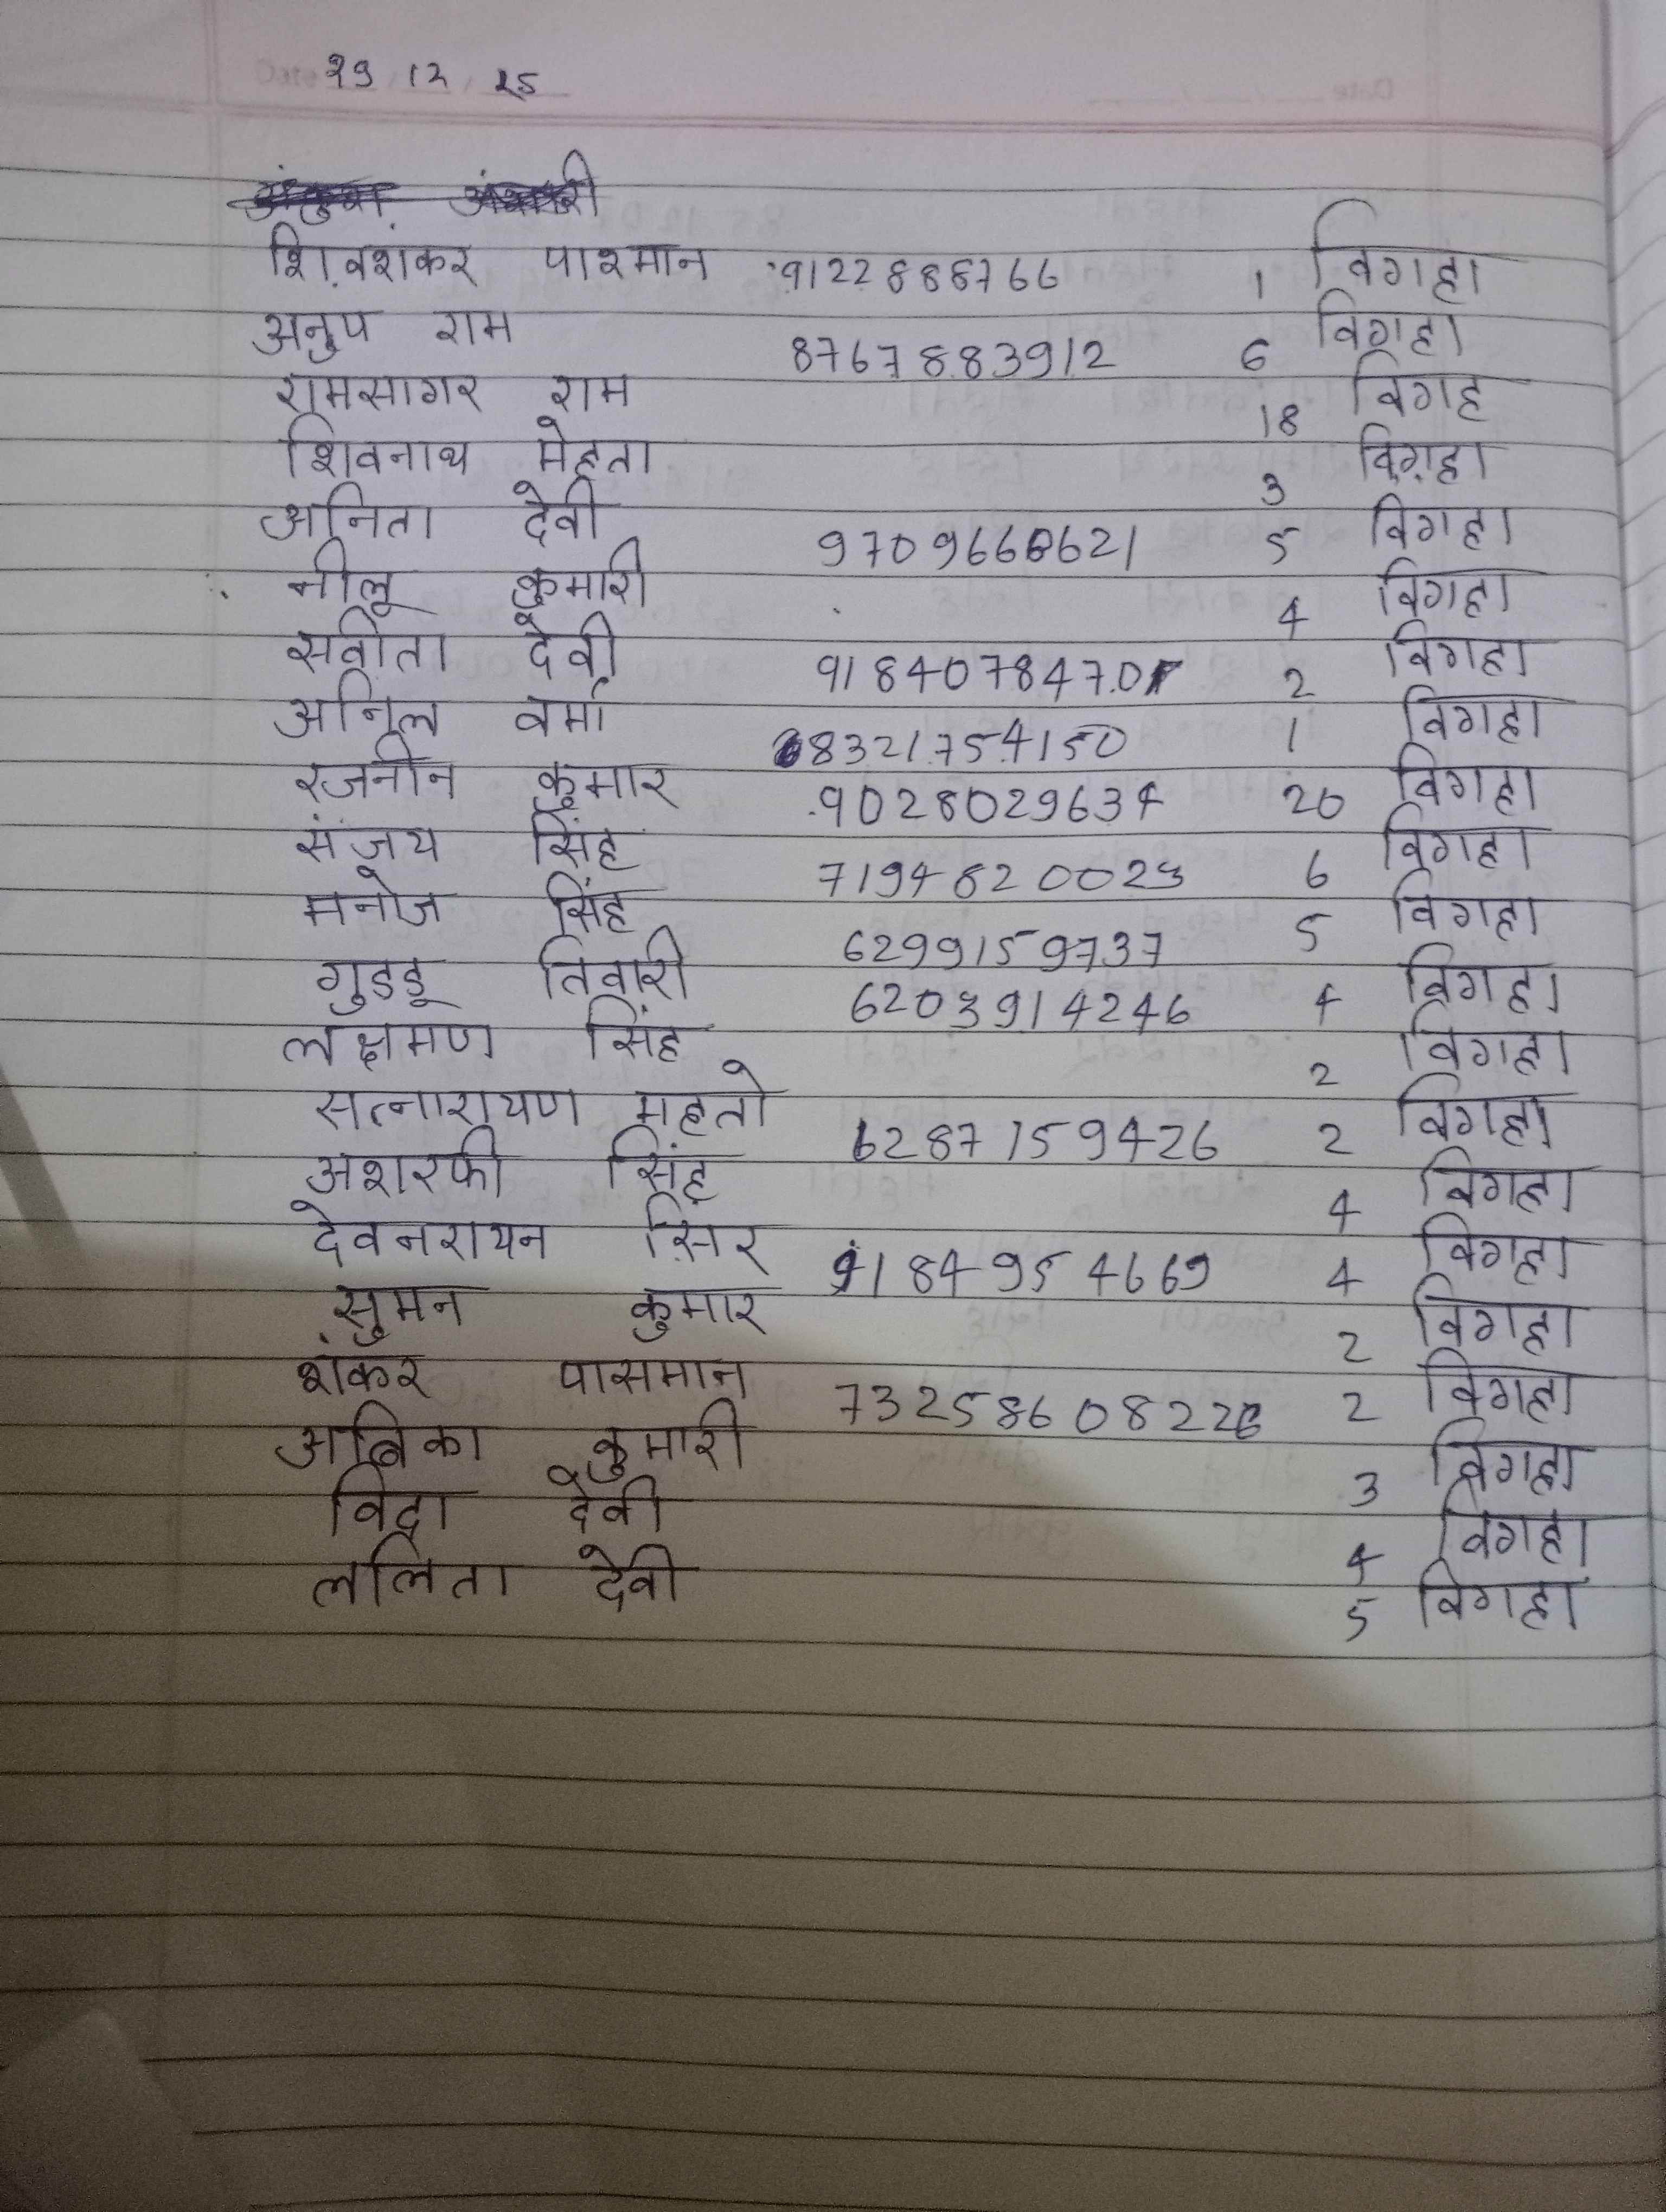 29 12 25
शिवशंकर पाश्मान 9122888766 1 विगहा
अनुप राम 8767883912 6 विगहा
रामसागर राम 18 विगह
शिवनाथ मेहता 3 विग़हा
अनिता देवी 9709660621 5 विगहा
नीलू कुमारी 4 विगहा
सवीता देवी 9184078470 2 विगहा
अनिल वर्मा 8321754150 1 विगहा
रजनीन कुमार 9028029634 20 विगहा
संजय सिंह 7194820023 6 विगहा
मनोज सिंह 6299159737 5 विगहा
गुडडू तिवारी 6203914246 4 विगहा
लक्षमण सिंह 2 विगहा
सत्नारायण महतो 6287159426 2 विगहा
अशरफी सिंह 4 विगहा
देवनरायन सिर 9184954669 4 विगहा
सुमन कुमार 2 विगहा
शंकर पासमान 73258608226 2 विगहा
कुमारी 3 विगहा
विद्रा देवी 4 विगहा
ललिता देवी 5 विगहा